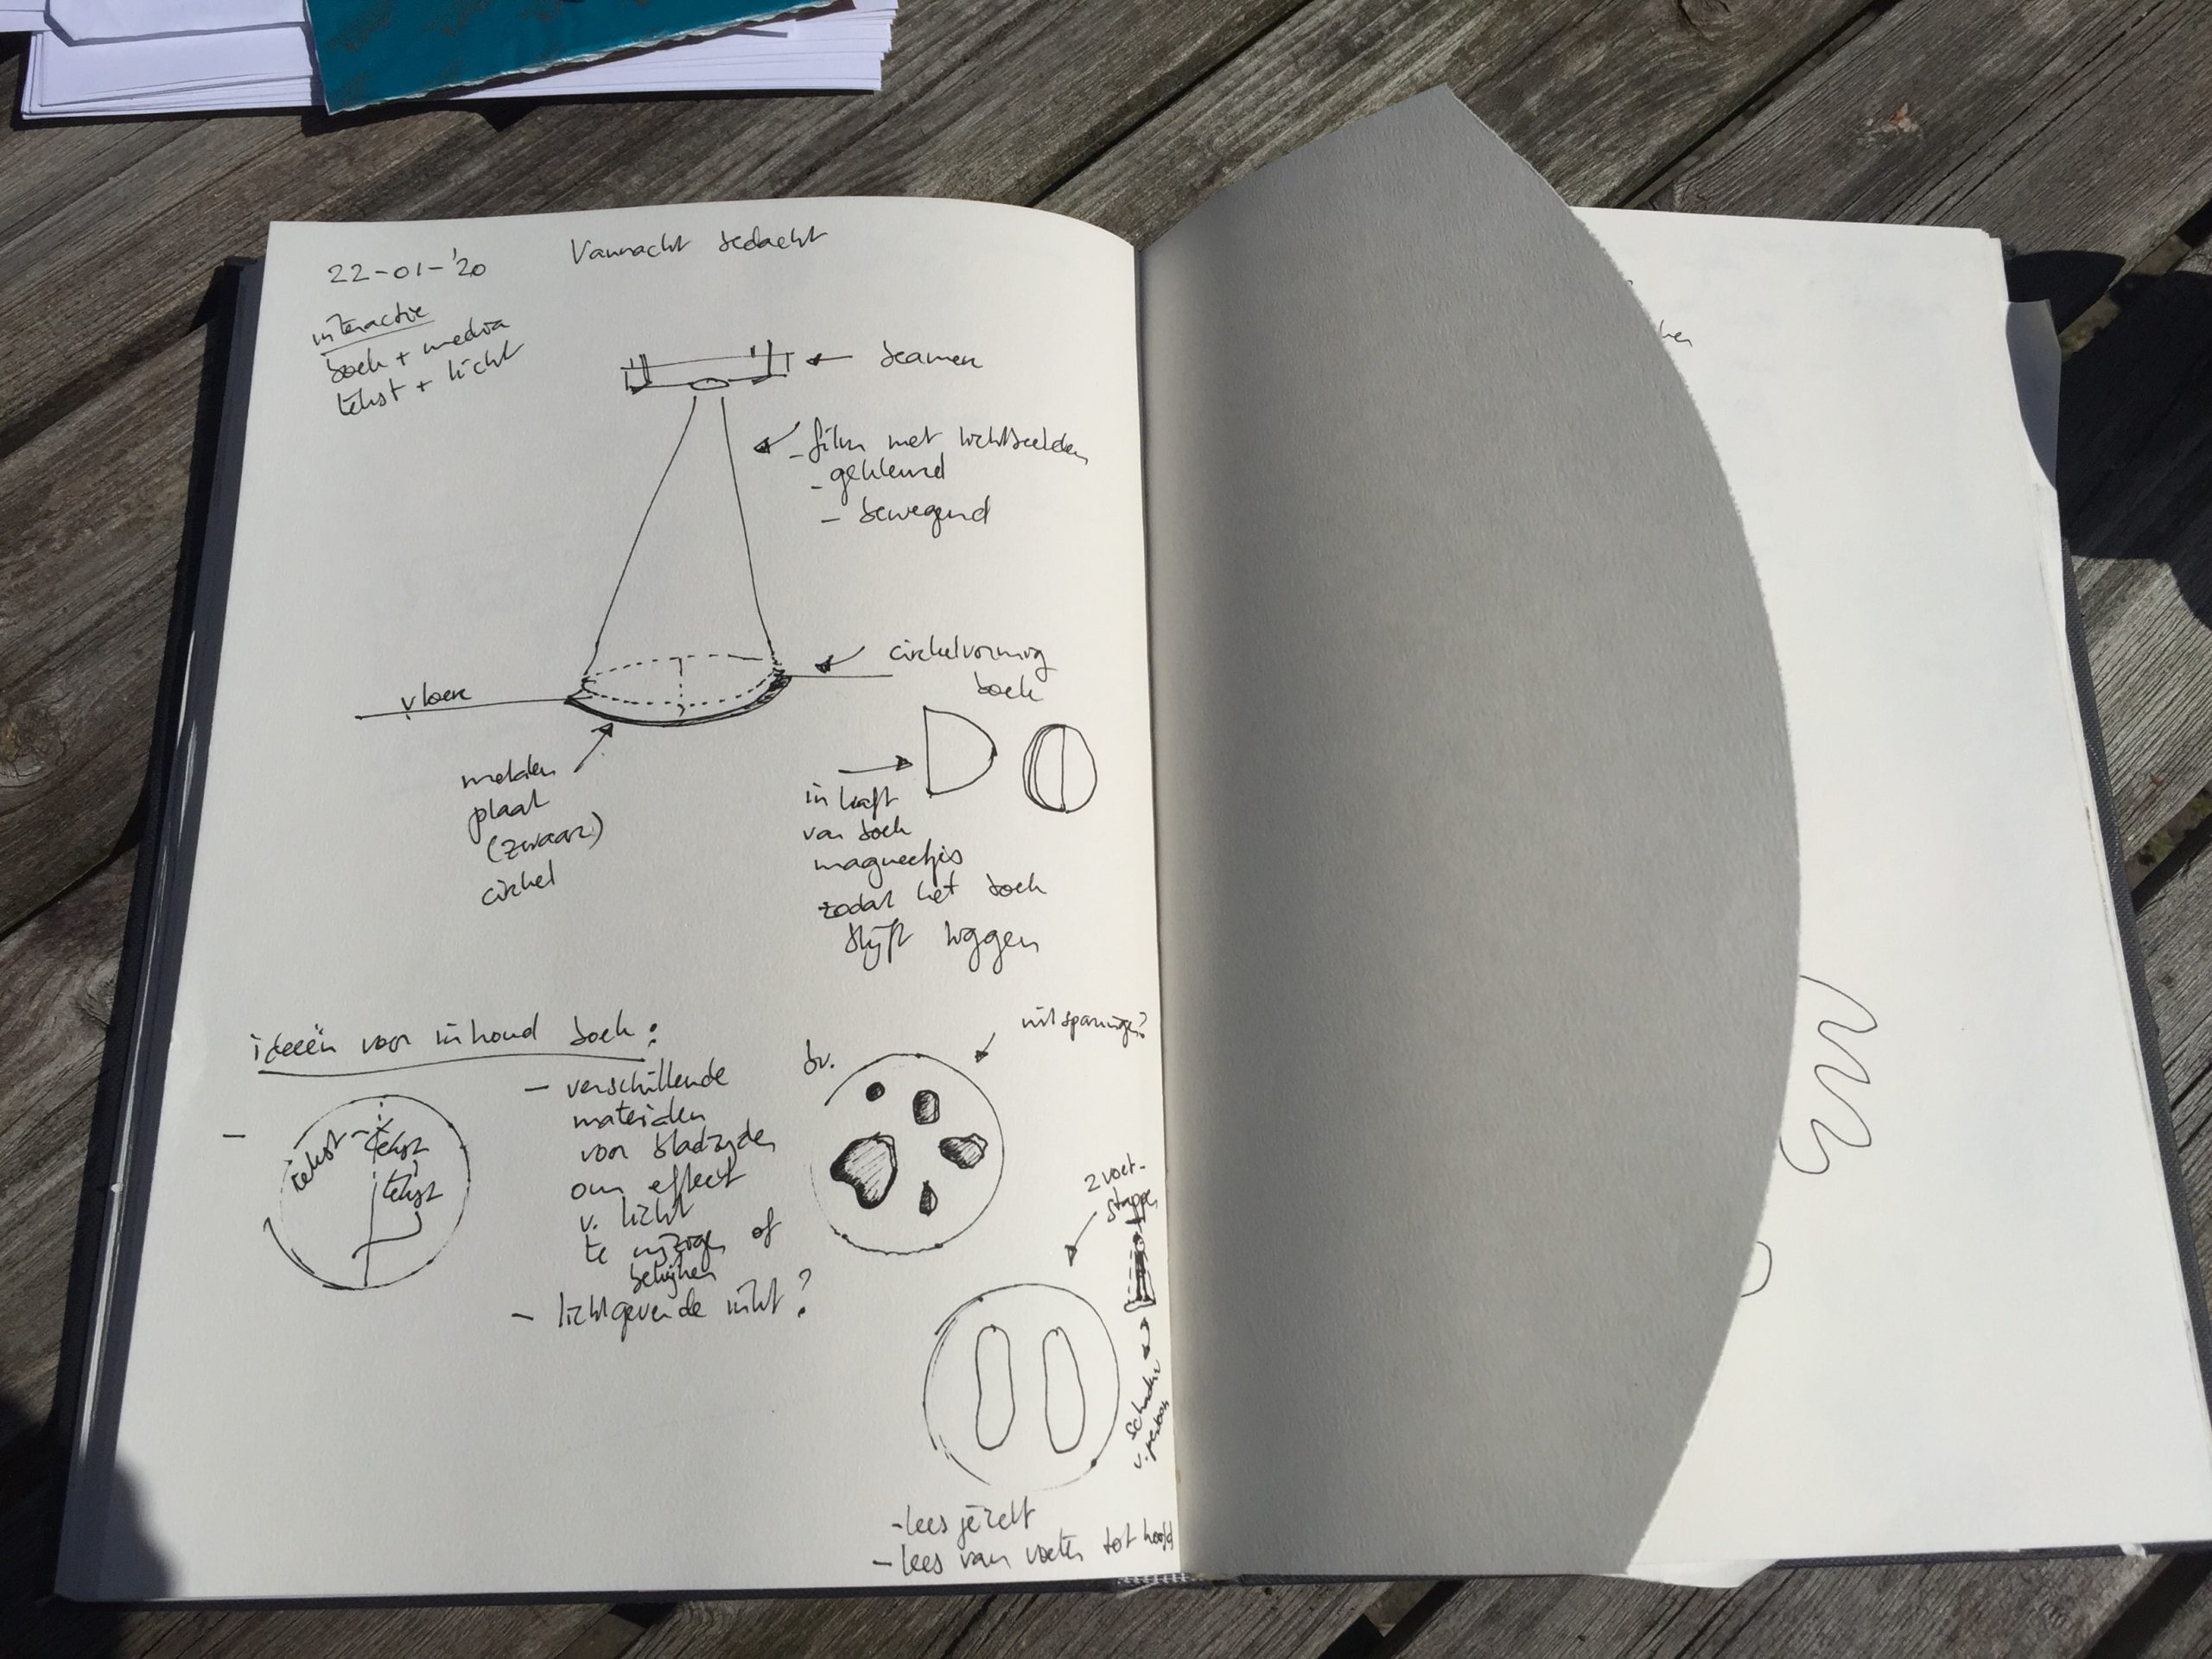 22-01-'20
Vannacht bedacht
interactie
boek + media
tekst + licht
beamer
- film met lichtbeelden
- gekleurd
- bewegend
cirkelvormig
boek
vloer
metalen
plaat
(zwaar)
cirkel
in kaft
van boek
magneetjes
zodat het boek
blijft liggen
ideeën voor inhoud boek:
-
tekst
tekst
tekst
- verschillende
materialen
voor bladzijden
om effect
v. licht
te
of
bekijken
- lichtgevende inkt?
bv.
uitsparingen?
2 voet-
stappen
schaduw
v. persoon
- lees jezelf
- lees van voeten tot hoofd